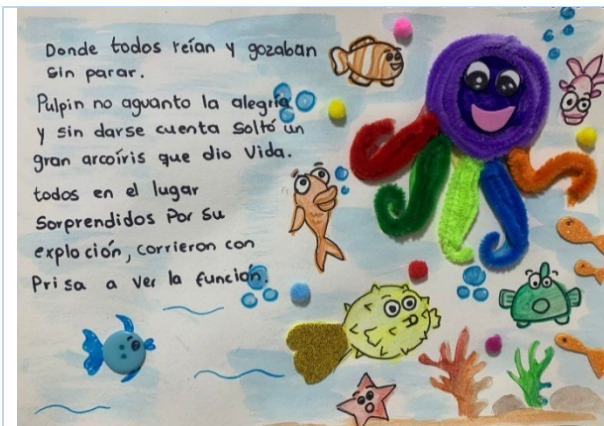 Donde todos reían y gozaban
sin parar.
Pulpin no aguanto la alegría
y sin darse cuenta soltó un
gran arcoíris que dio vida.
todos en el lugar
sorprendidos por su
explo ción, corrieron con
prisa a ver la función.